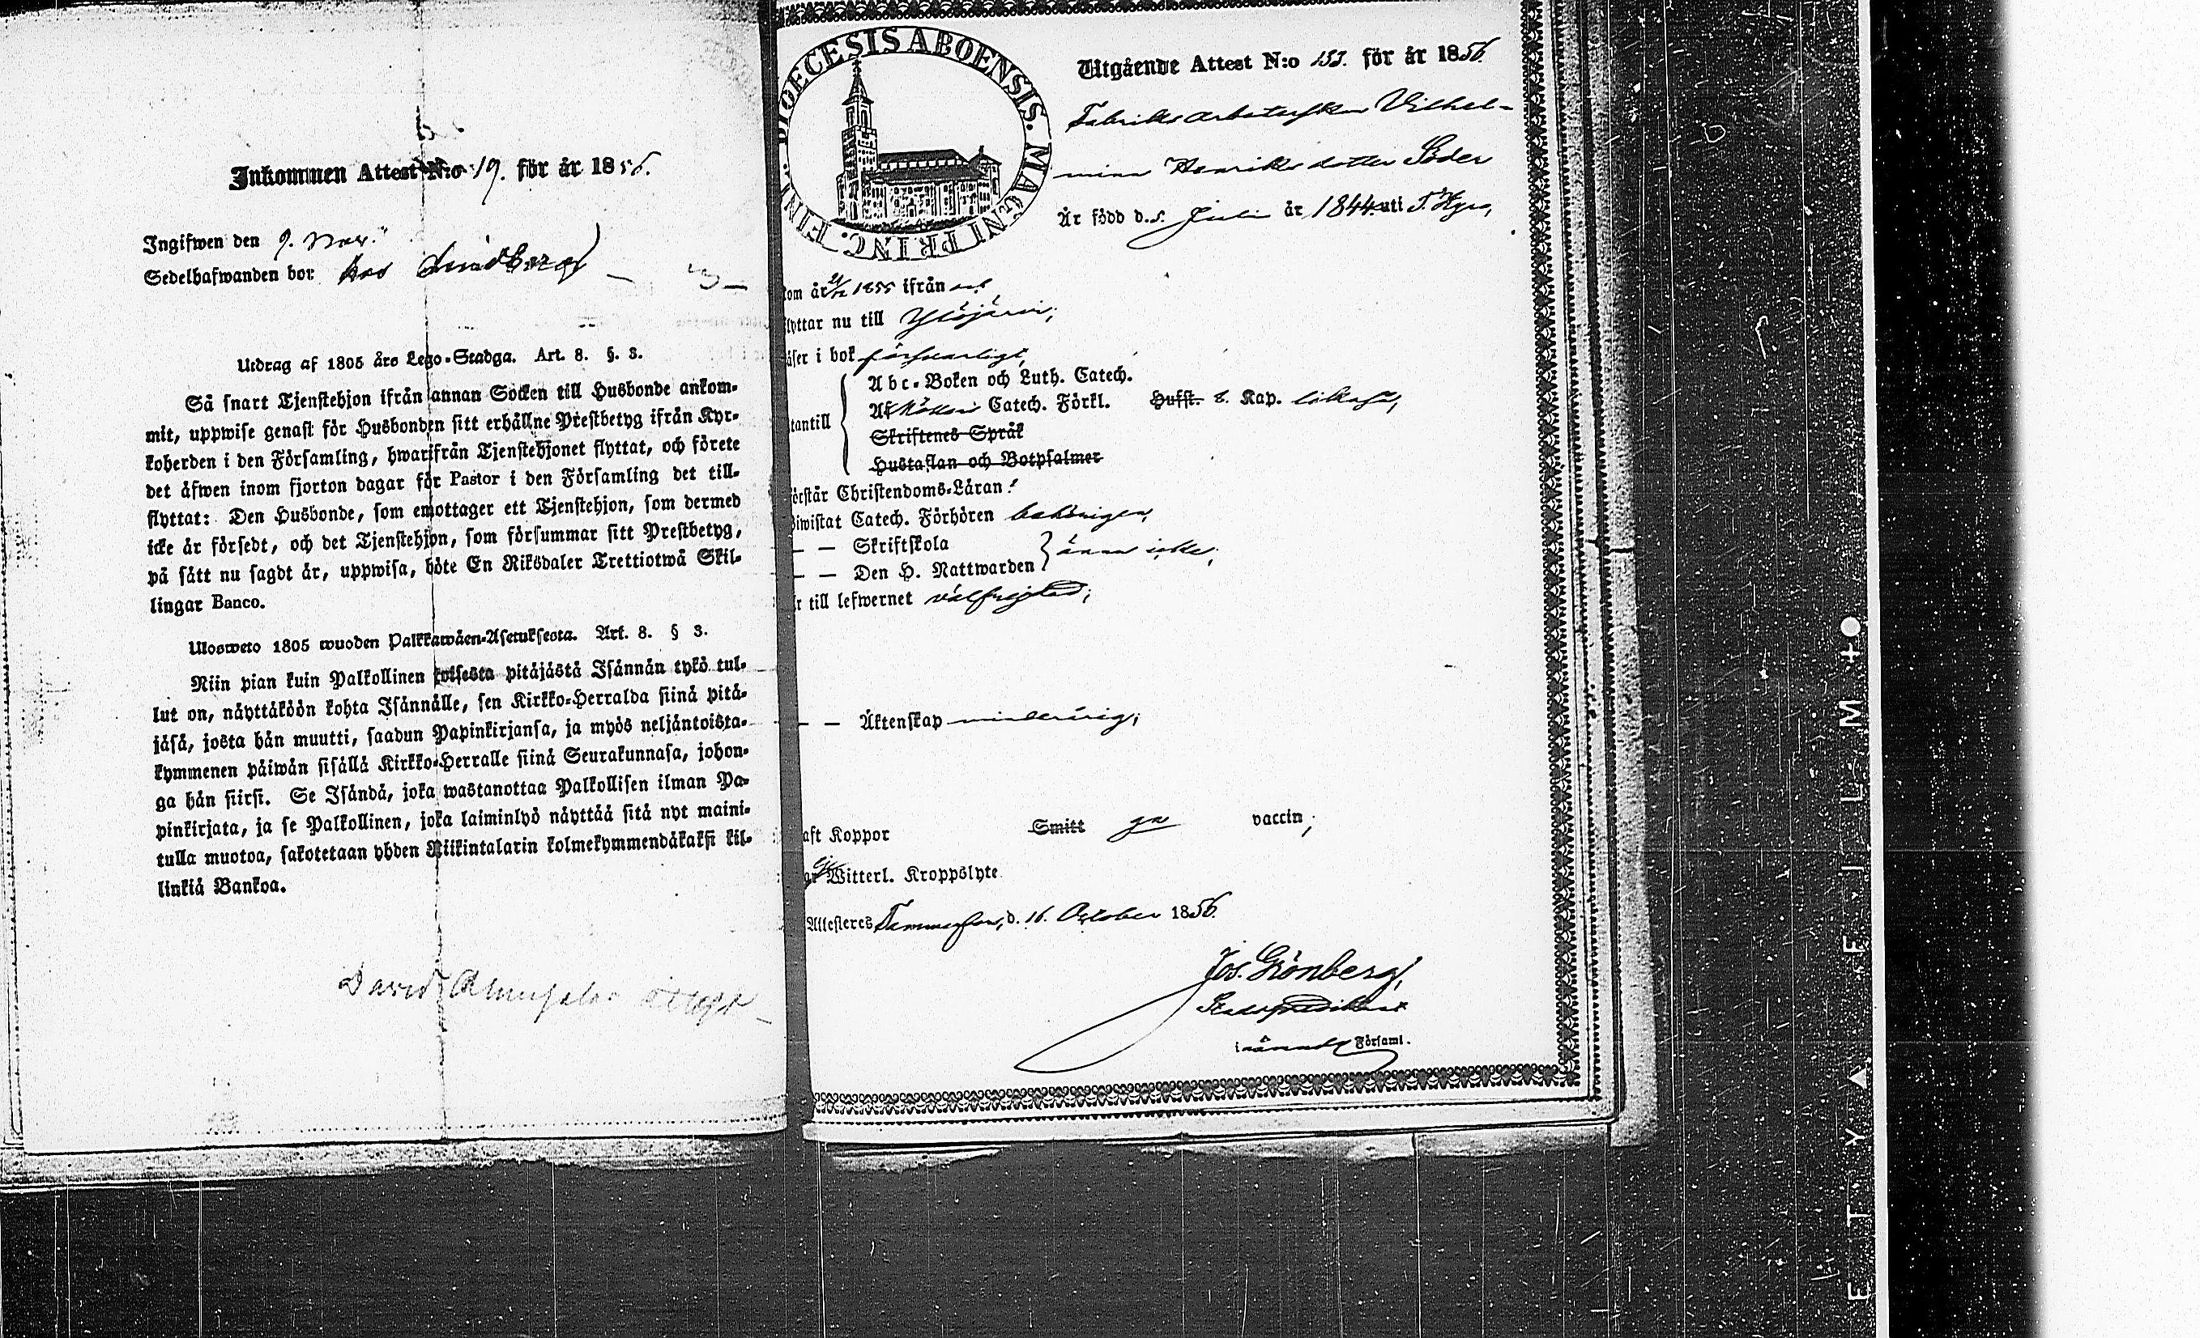 Inkommen Attest N:o 19. för år 1856.
Ingifwen den 9. Nov.
Sedelhafwanden bor hos Lindberg
Utdrag af 1805 års Lego-Stadga. Art. 8. §. 3.
Så snart Tjenstehjon ifrån annan Socken till Husbonde ankom-
mit, uppwise genast för Husbonden sitt erhållne Prestbetyg ifrån Kyr-
koherden i den Församling, hwarifrån Tjenstehjonet flyttat, och förete
det äfwen inom fjorton dagar för Pastor i den Församling det till-
flyttat: Den Husbonde, som emottager ett Tjenstehjon, som dermed
icke är försedt, och det Tjenstehjon, som försummar sitt Prestbetyg,
på sätt nu sagdt är, uppwisa, böte En Riksdaler Trettiotwå Skil-
lingar Banco.
Ulosweto 1805 wuoden Palkkawäen-Asetuksesta. Art. 8. § 3.
Niin pian kuin Palkollinen toisesta pitäjästä Isännän tykö tul-
lut on, näyttäköön kohta Isännälle, sen Kirkko-Herralda siinä pitä-
jäsä, josta hän muutti, saadun Papinkirjansa, ja myös neljäntoista-
kymmenen päiwän sisällä Kirkko-Herralle siinä Seurakunnasa, johon-
ga hän siirsi. Se Isändä, joka wastanottaa Palkollisen ilman Pa-
pinkirjata, ja se Palkollinen, joka laiminlyö näyttää sitä nyt maini-
tulla muotoa, sakotetaan yhden Riikintalarin kolmekymmendäkaksi kil-
linkiä Bankoa.
David
DIOECESIS ABOENSIS. MAGNI PRINC. FINL.
Utgående Attest N:o 153. för år 1856.
Fabriks arbeterskan Vilhel-
mina Henriksdotter Söder
Är född d. 5. Juli år 1844 uti T. Kyro,
kom år 1855 ifrån
flyttar nu till Ylöjärvi;
läser i bok försvarligt,
utantill
Abc-Boken och Luth. Catech.
Catech. Förkl. Hufst. 8. Kap. likaså,
Skriftenes Språk
Hustaflan och Botpsalmer
förstår Christendoms-Läran
biwistat Catech. Förhören behörigen,
— — Skriftskola
— — Den H. Nattwarden } ännu icke;
är till lefwernet välfrejdad;
— — Äktenskap minderårig;
haft Koppor Smitt ja vaccin;
har Witterl. Kroppslyte
Attesteres Tammerfors, d. 16. October 1856.
Jos. Grönberg,
Stadspredikant
i nämnde Församl.
ETY ▲ FILM